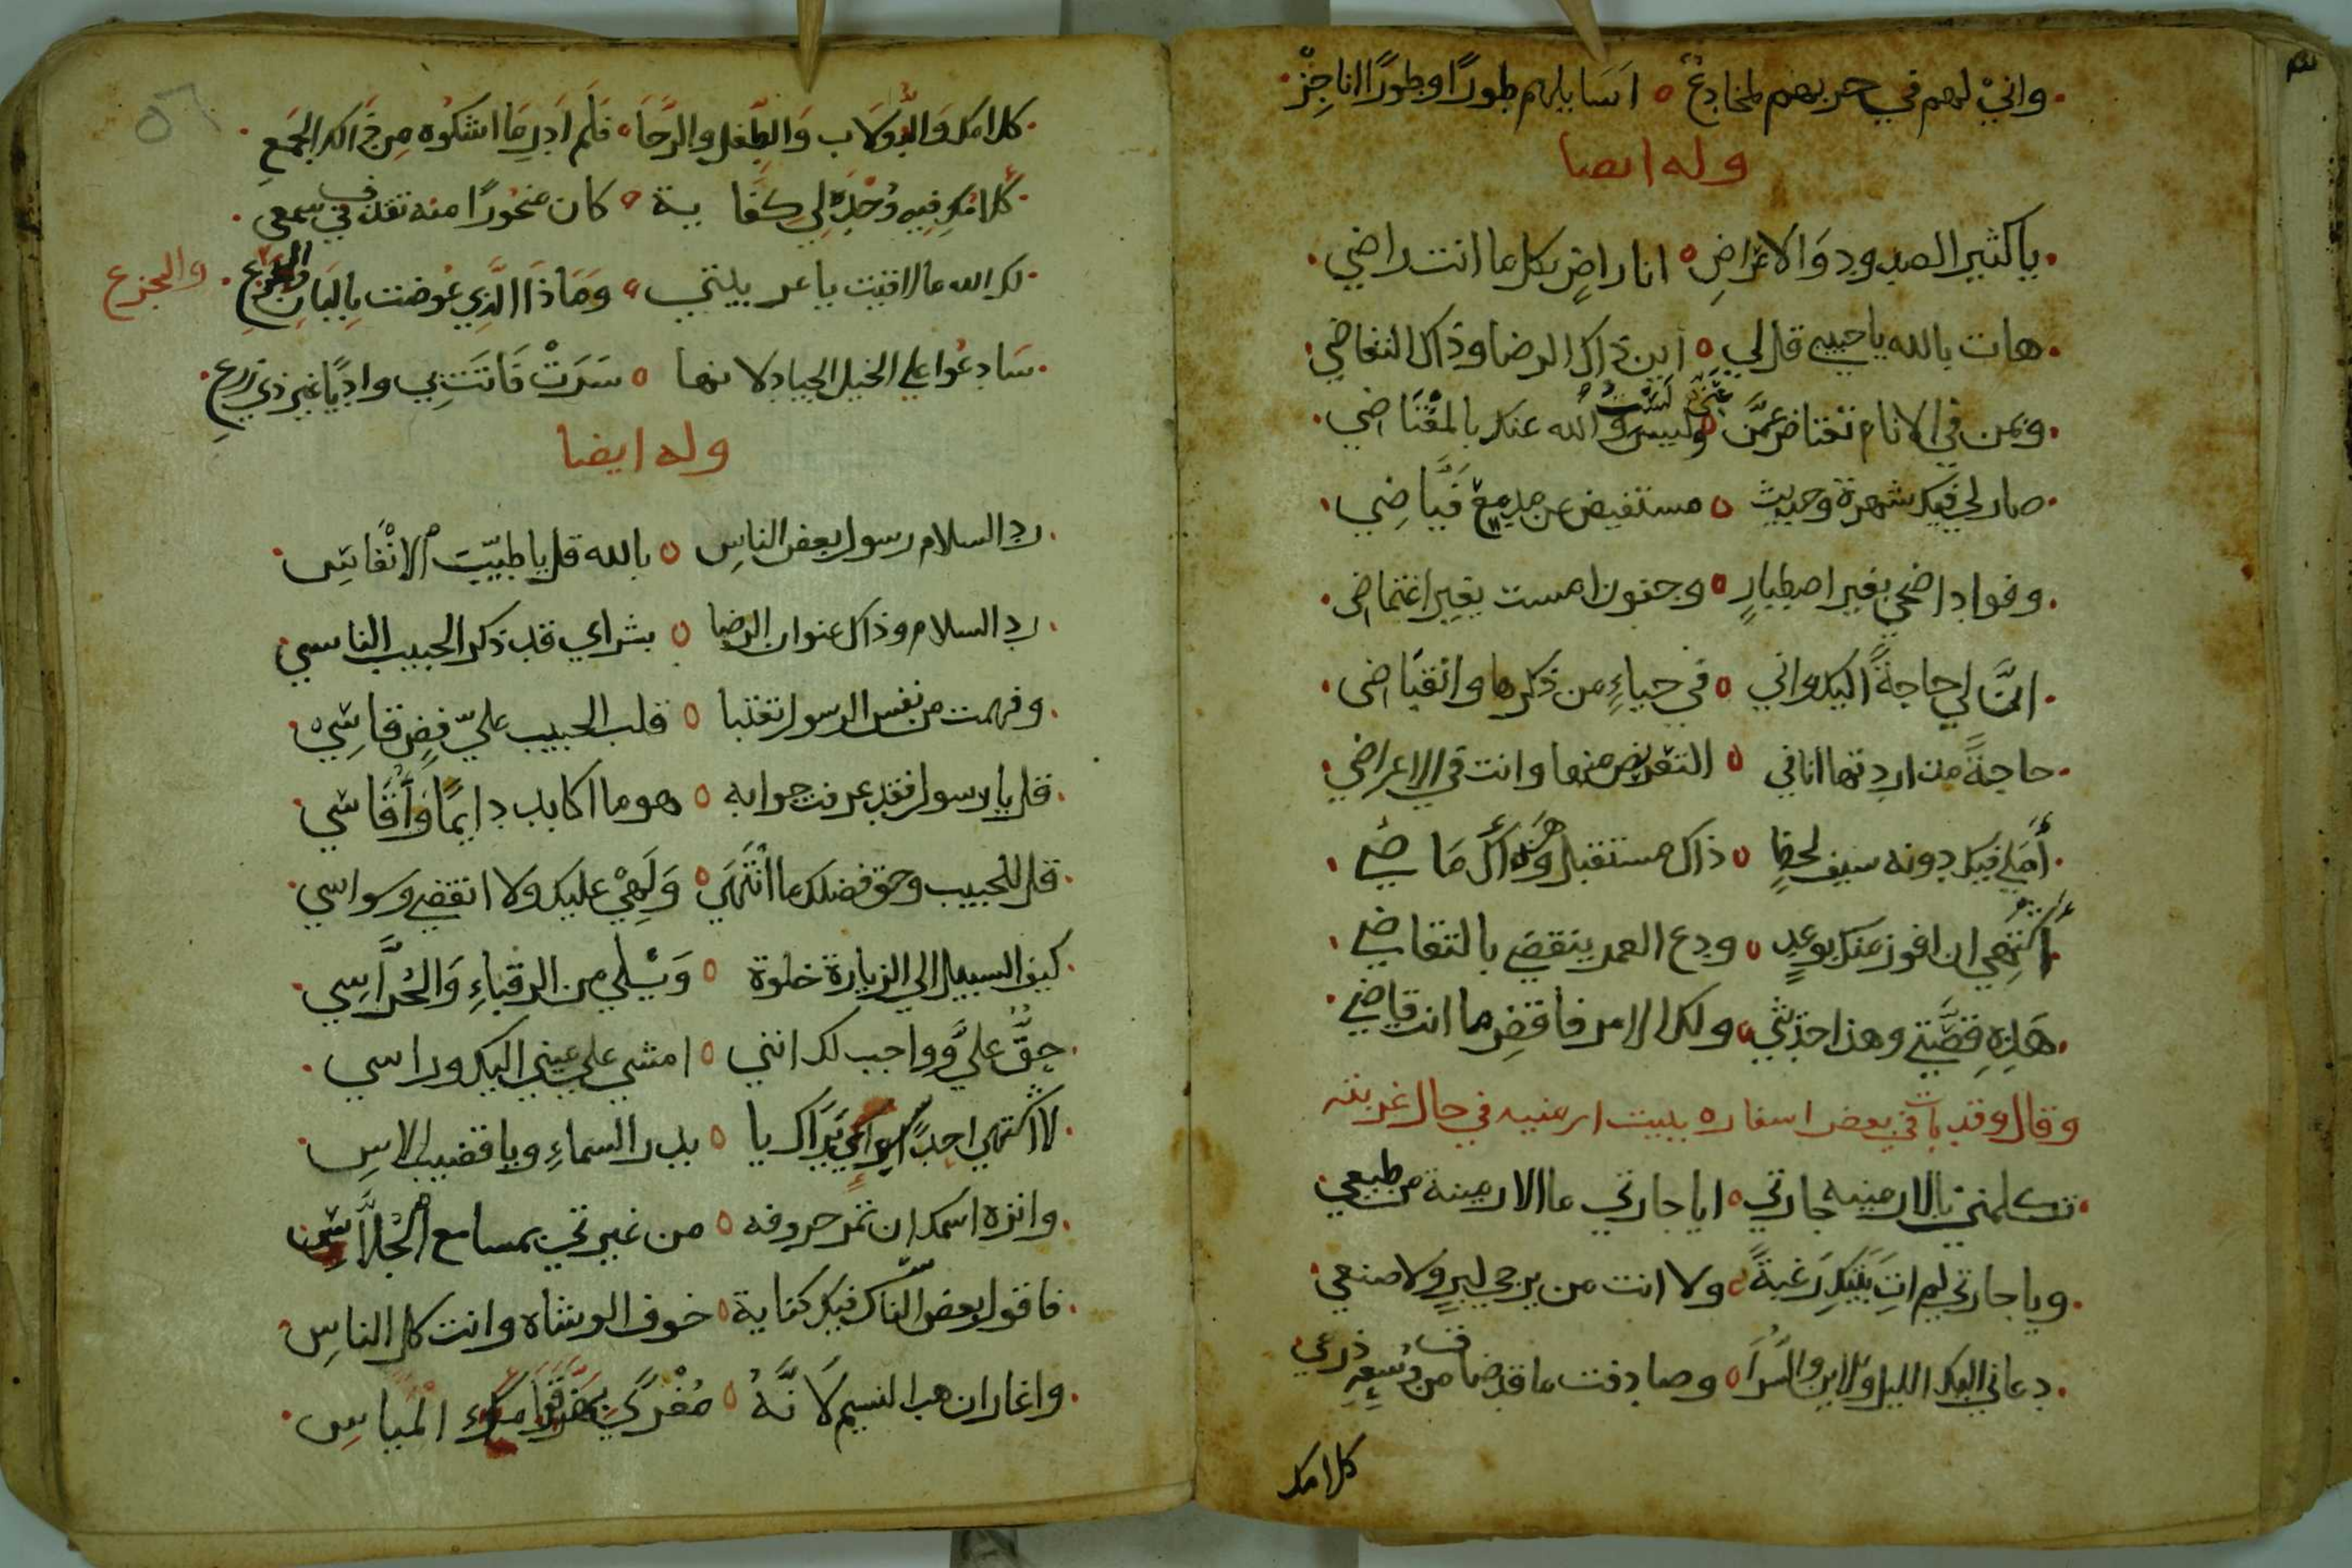 واني لهم في حربهم لمخادع ه اسايلهم طورا وطورا اناجز
وله ايضا
ياكثير الصدود والاعراض ه انا راض بكل ما انت راضي
هات بالله يا حبيبي قل لي ه اين ذاك الرضا وذاك التغاضي
وبمن في الانام تعتاض عني لست والله عنك بالمعتاضي
صار لي فيك شهرة وحديث ه مستفيض عن مدمع فياضي
وفواد اضحى بغير اصطبار ه وجفون امست بغير اغتماض
ان لي حاجة اليك واني ه في حياء من ذكرها وانقباض
حاجة مذ اردتها انا في ه التعريض منها وانت في الاعراضي
أملي فيك دونه سيف لحظ ه ذاك مستقبل وهذاك ماضي
أشتهي ان افوز منك بوعد ه ودع العمر ينقضي بالتقاضي
هذه قصتي وهذا حديثي ه ولك الامر فاقض ما انت قاضي
وقال وقد بات في بعض اسفاره ببيت ارمنيه في حال غربته
تكلمني بالارمنيه جارتي ه ايا جارتي ما الارمينة من طبعي
ويا جارتي لم ات بيتك رغبة ه ولا انت من يرجى لبر ولا صنعي
دعاني اليك الليل والاين والسرا ه وصادفت ما قد ضاق من وسعه ذرعي
كلامك
كلامك والدولاب والطبل والرحا ه فلم ادر ما اشكوه من ذالك الجمع
كلامك فيه وحده لي كفاية ه كان صخورا منه تقذف في سمعي
لك الله ما لاقيت يا عربيتي ه وماذا الذي عوضت بالبان والجزع
والجزع
سادعوا على الخيل الجياد لانها ه سرت فاتت بي واديا غير ذي زرع
وله ايضا
رد السلام رسول بعض الناس ه بالله قل يا طيب الانفاس
رد السلام وذاك عنوان الرضا ه بشراي قد ذكر الحبيب الناسي
وفهمت من نفس الرسول تعتبا ه قلب الحبيب علي فض قاسي
قل يا رسول فقد عرفت جوابه ه هو ما اكابد دايما واقاسي
قل للحبيب وحق فضلك ما انتهى ه ولهي عليك ولا انقضى وسواسي
كيف السبيل الى الزيارة خلوة ه ويلي من الرقباء والحراسي
حق علي وواجب لك انني ه امشي على عيني اليك وراسي
لا اشتهي احدا سواي يراك يا ه بدر السماء ويا قضيب الاس
وانزه اسمك ان تمر حروفه ه من غيرتي بمسامع الجلاس
فاقول بعض الناس فيك كناية ه خوف الوشاه وانت كل الناس
واغار ان هب النسيم لانه ه مغرى المياس